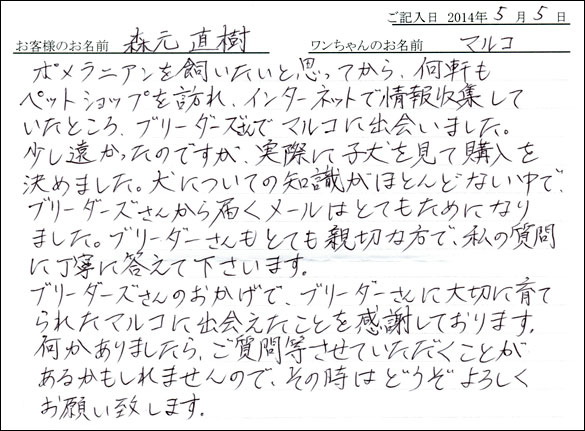 ご記入日 2014年 5月 5日
お客様のお名前 森元 直樹 ワンちゃんのお名前 マルコ
ポメラニアンを飼いたいと思ってから、何軒も
ペットショップを訪れ、インターネットで情報収集して
いたところ、ブリーダーズさんでマルコに出会いました。
少し遠かったのですが、実際に子犬を見て購入を
決めました。犬についての知識がほとんどない中で、
ブリーダーズさんから届くメールはとてもためになり
ました。ブリーダーさんもとても親切な方で、私の質問
に丁寧に答えて下さいます。
ブリーダーズさんのおかげで、ブリーダーさんに大切に育て
られたマルコに出会えたことを感謝しております。
何かありましたら、ご質問等させていただくことが
あるかもしれませんので、その時はどうぞよろしく
お願い致します。